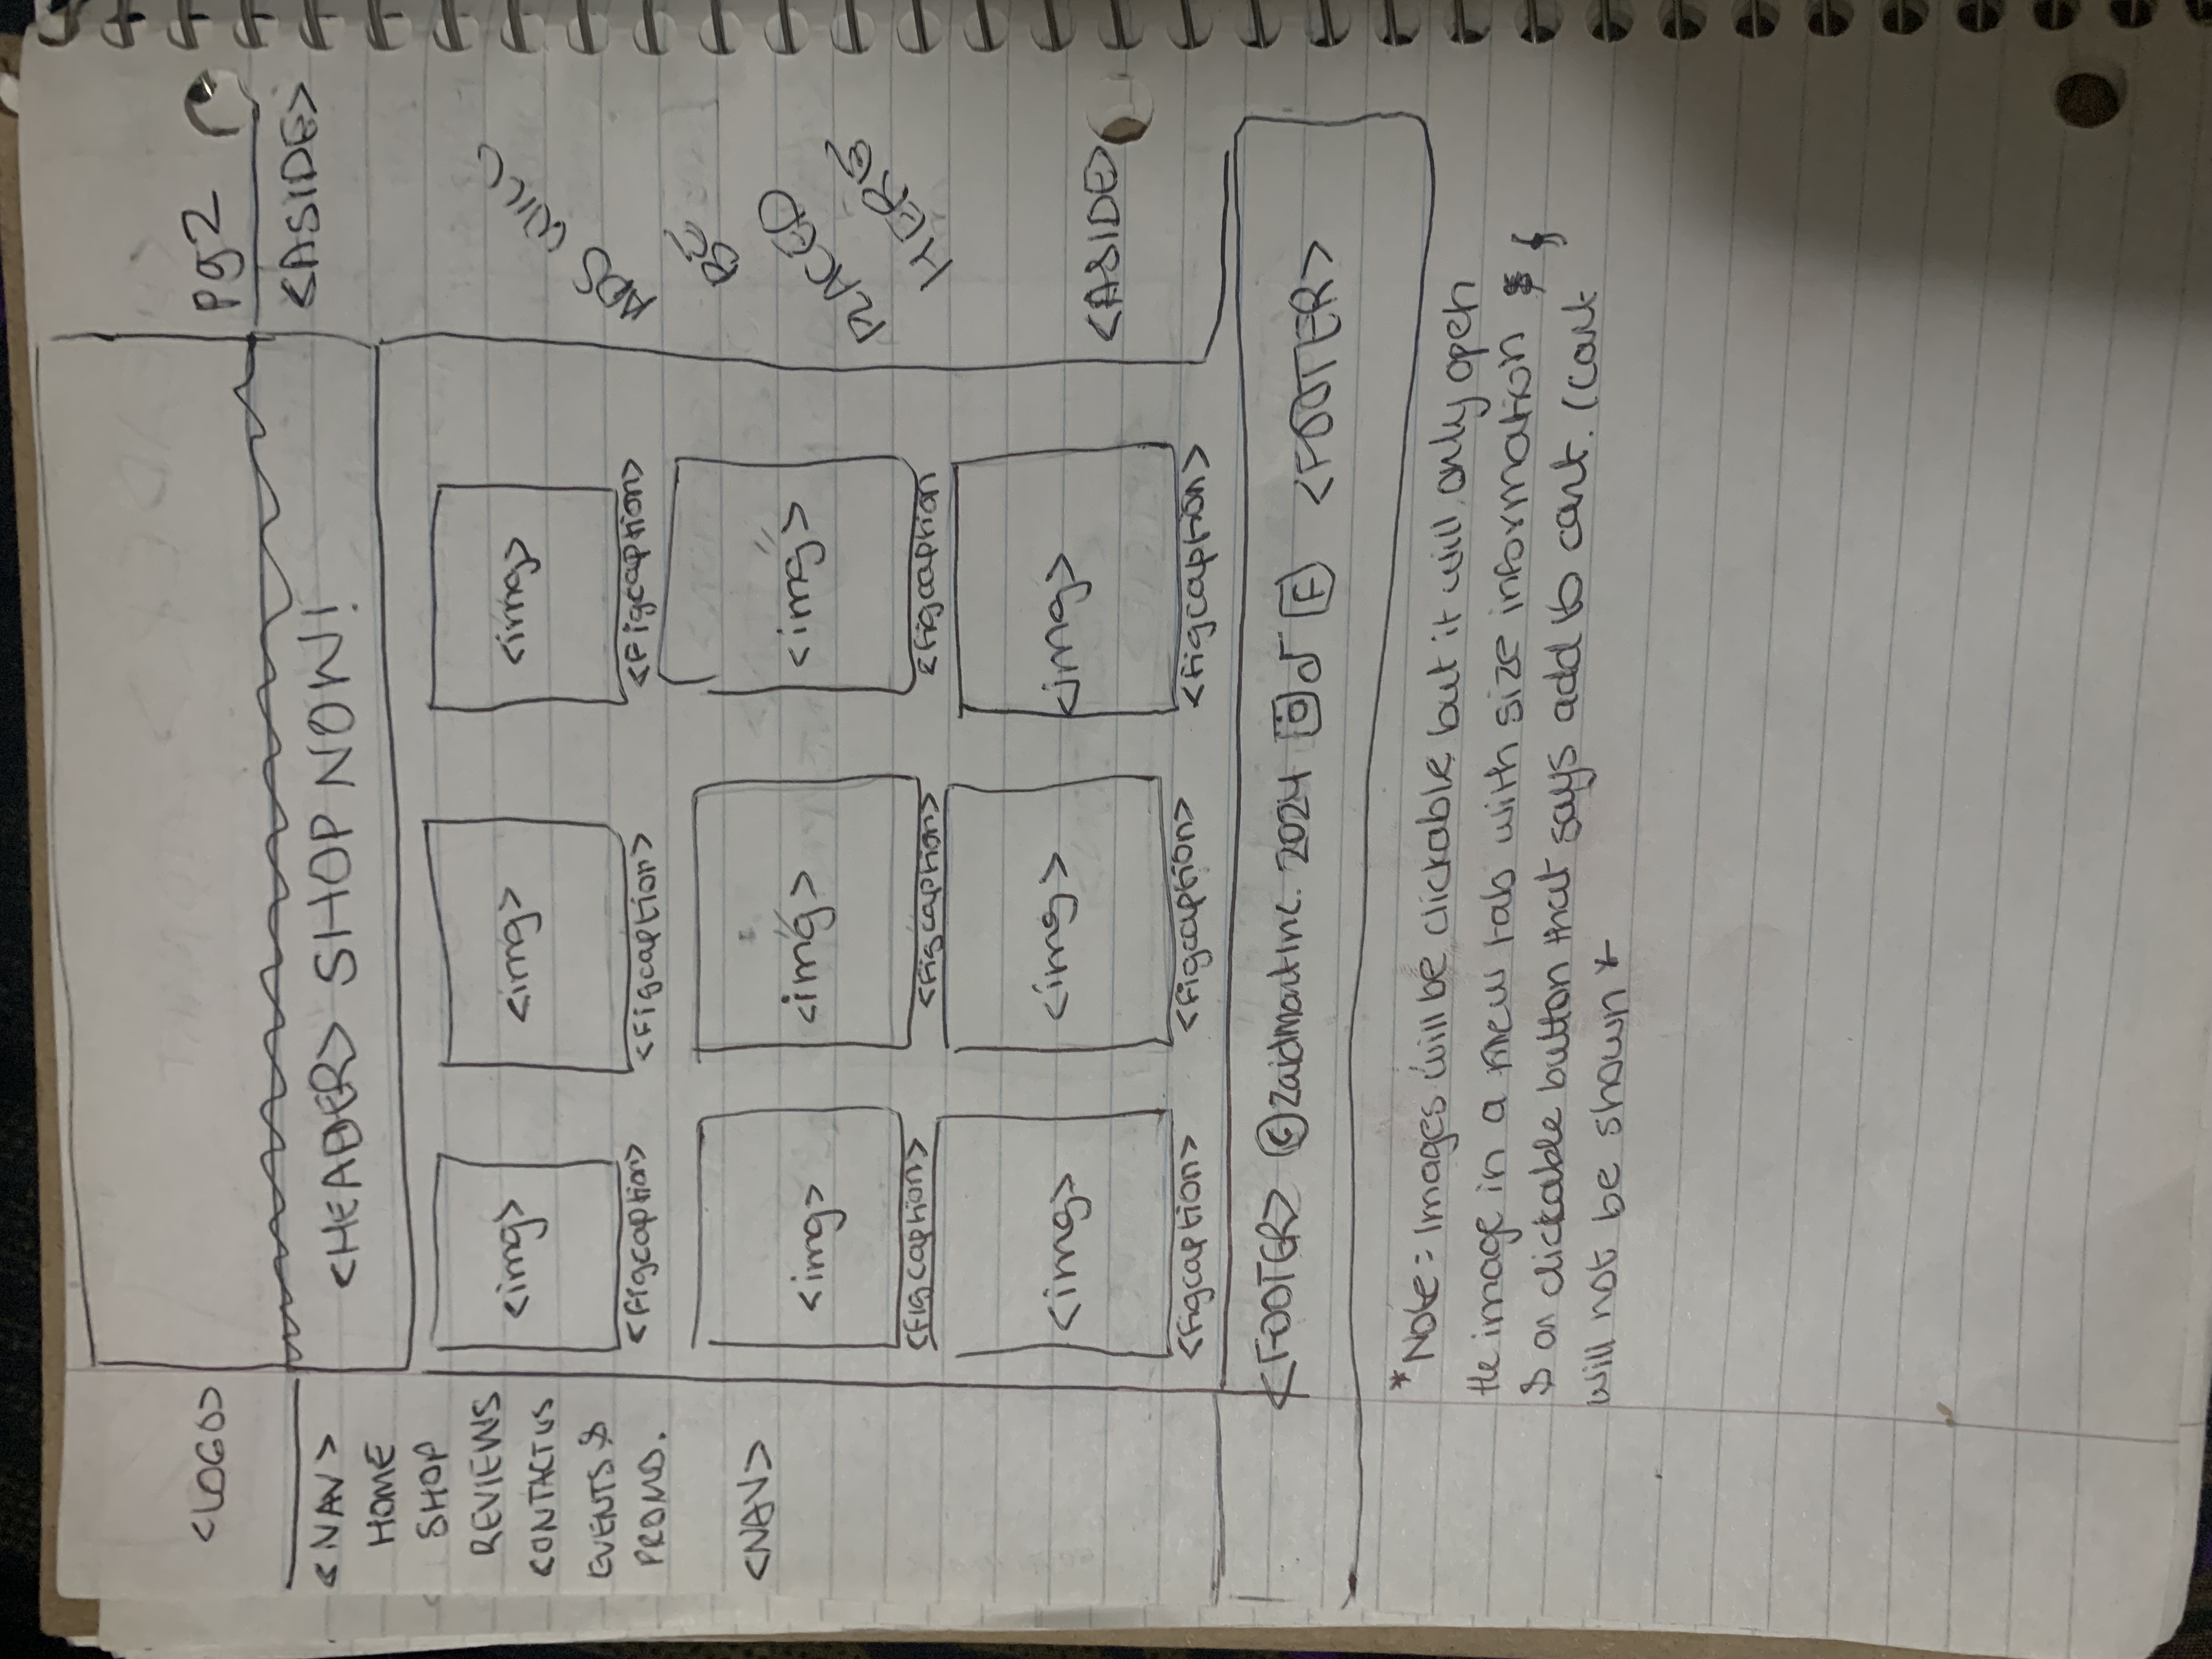 <LOGO>
pg2
<NAV>
HOME
SHOP
REVIEWS
CONTACT US
EVENTS &
PROMO.
<NAV>
<HEADER> SHOP NOW!
<img>
<img>
<img>
<Figcaption>
<Figcaption>
<Figcaption>
<img>
<img>
<img>
<Figcaption>
<Figcaption>
<Figcaption
<img>
<img>
<img>
<Figcaption>
<Figcaption>
<Figcaption>
<ASIDE>
ADS WILL
BE
PLACED
HERE
<ASIDE>
<FOOTER> © Zaidmart Inc. 2024 F <FOOTER>
*Note: Images will be clickable but it will only open
the image in a new tab with size information
& an clickable button that says add to cart. (Cart
will not be shown *